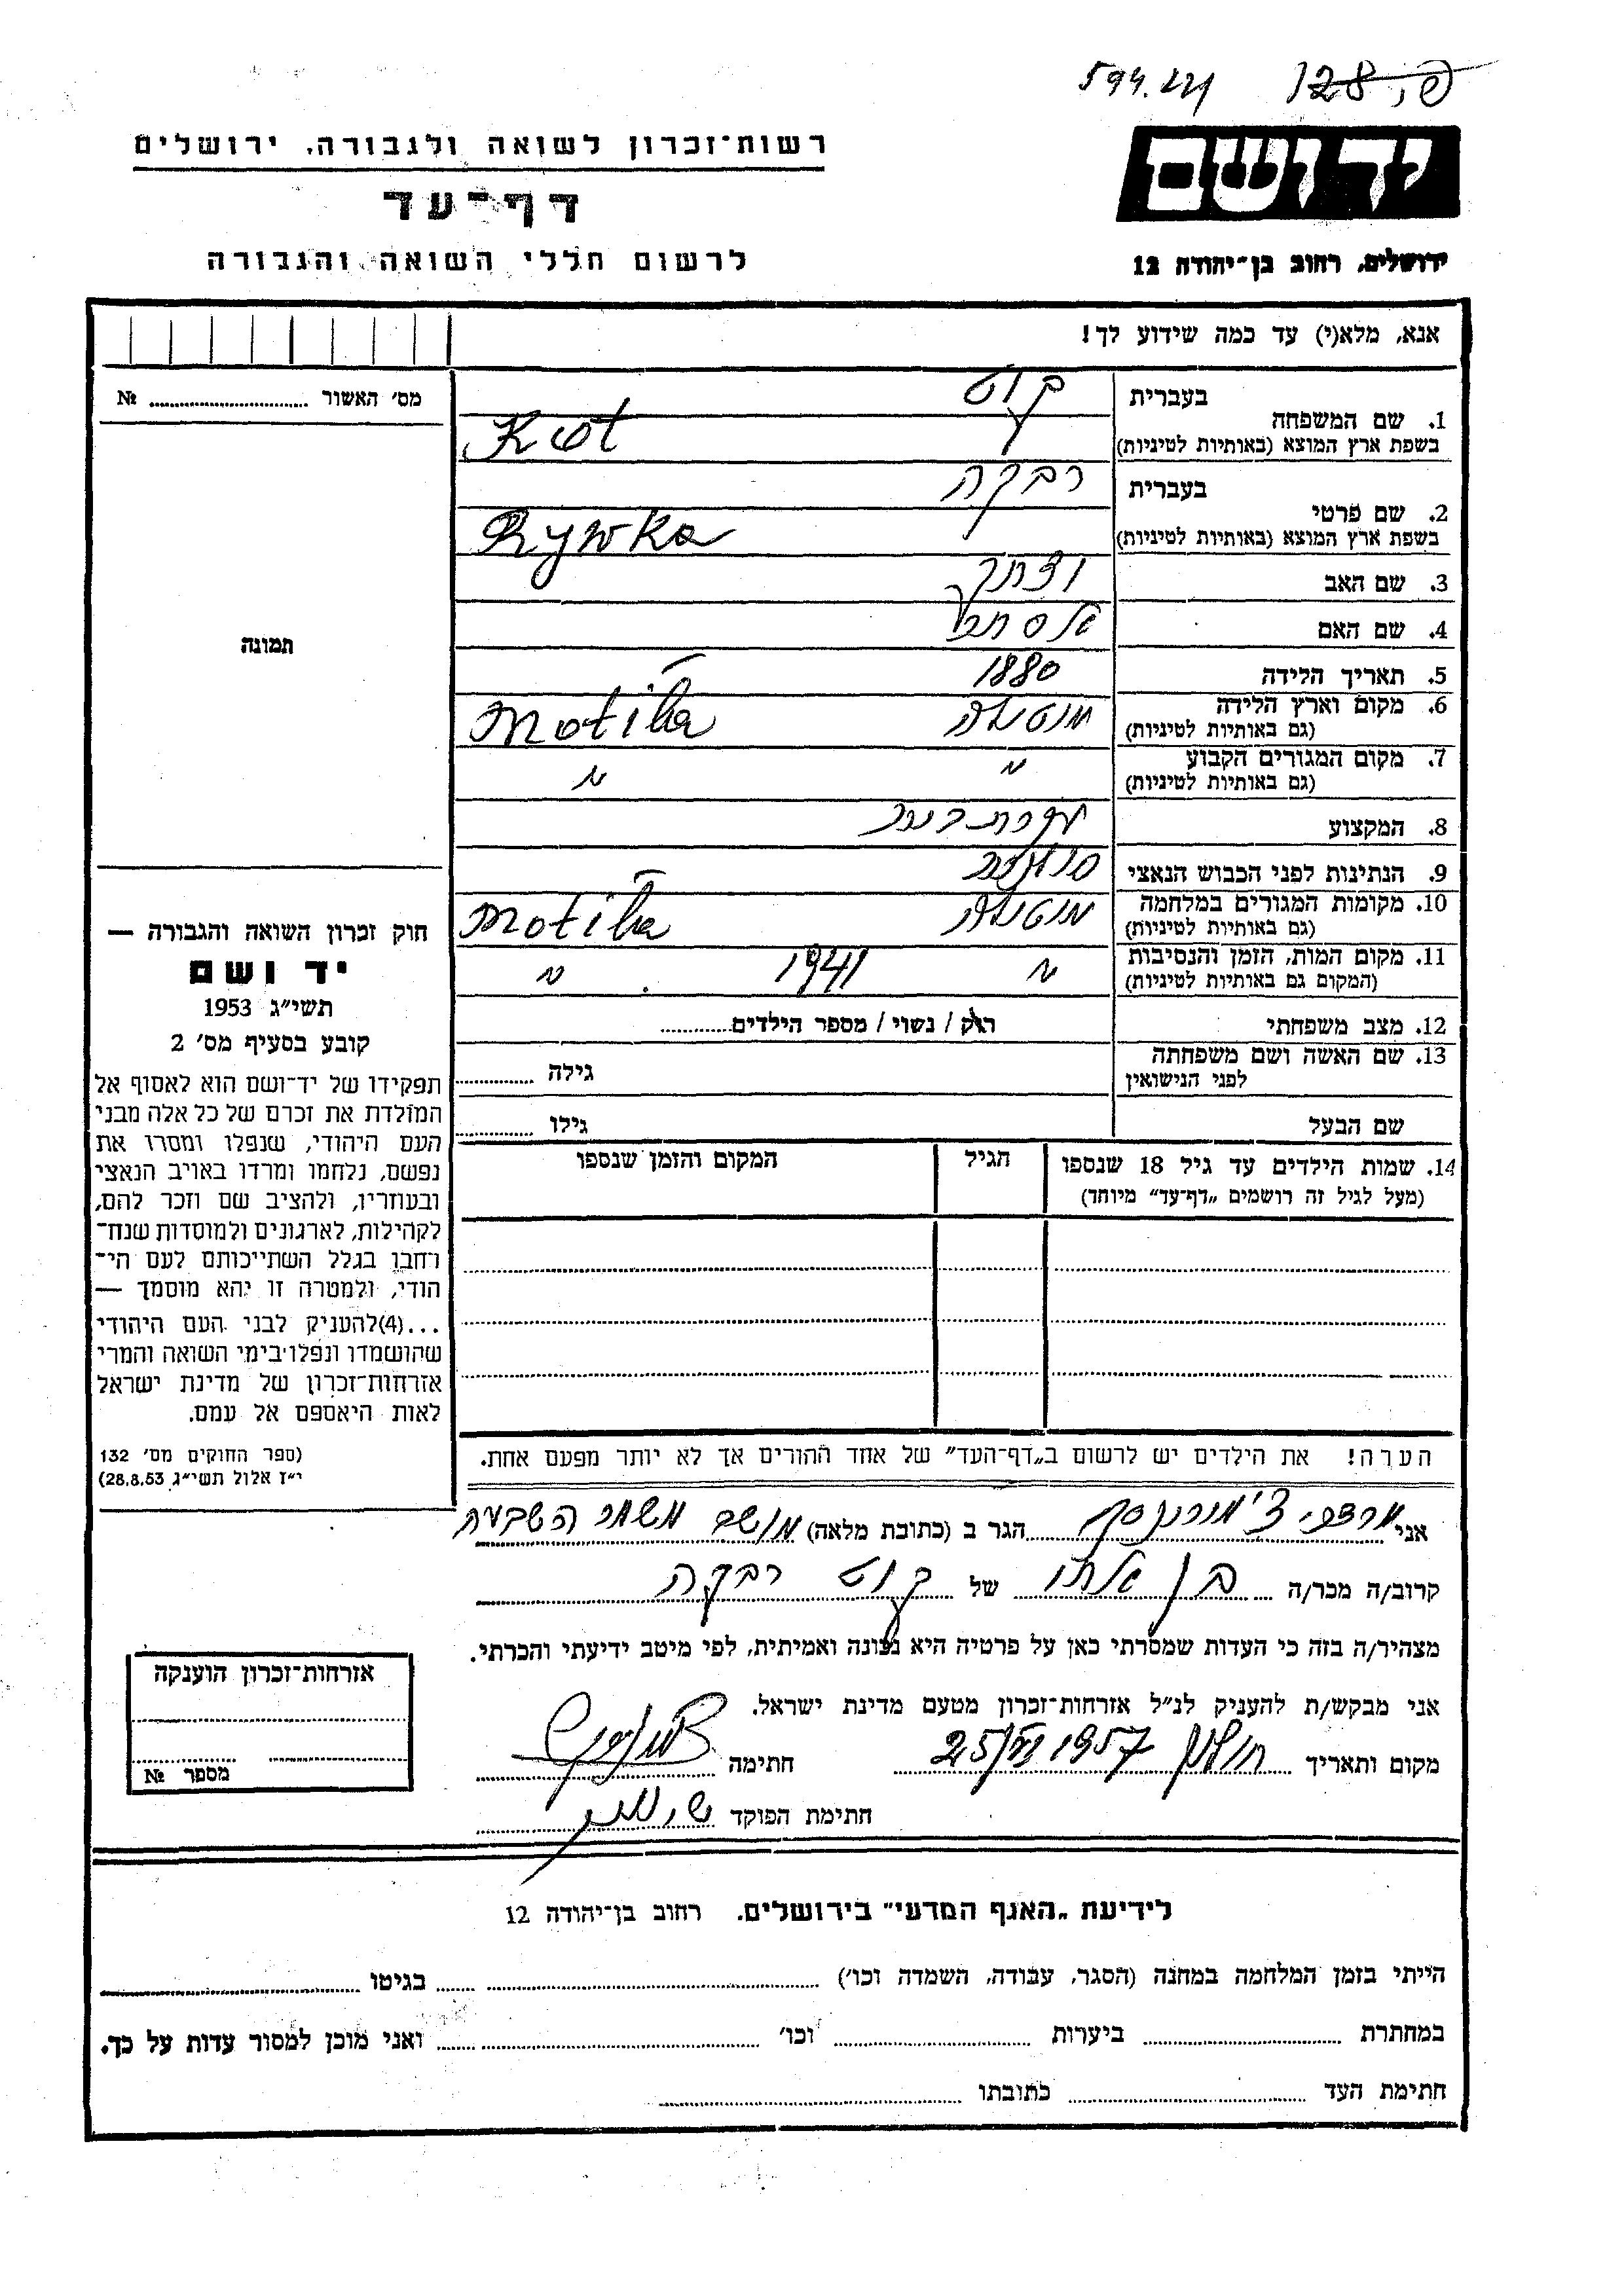 פ. 128 594.
רשות־זכרון לשואה ולגבורה, ירושלים
דף־עד
לרשום חללי השואה והגבורה
יד ושם
ירושלים, רחוב בן־יהודה 12
אנא, מלא(י) עד כמה שידוע לך!
מס׳ האשור ........ №
תמונה
1. שם המשפחה
בעברית קוט
בשפת ארץ המוצא (באותיות לטיניות) Kot
2. שם פרטי
בעברית רבקה
בשפת ארץ המוצא (באותיות לטיניות) Rywka
3. שם האב
4. שם האם
5. תאריך הלידה 1880
6. מקום וארץ הלידה
(גם באותיות לטיניות) מוטילה Motiłła
7. מקום המגורים הקבוע
(גם באותיות לטיניות) " "
8. המקצוע עקרת בית
9. הנתינות לפני הכבוש הנאצי
10. מקומות המגורים במלחמה
(גם באותיות לטיניות) מוטילה Motiłła
11. מקום המות, הזמן והנסיבות
(המקום גם באותיות לטיניות) " 1941 "
12. מצב משפחתי רוק / נשוי / מספר הילדים........
13. שם האשה ושם משפחתה
לפני הנישואין גילה ........
שם הבעל גילו ........
14. שמות הילדים עד גיל 18 שנספו
(מעל לגיל זה רושמים „דף־עד״ מיוחד)
הגיל
המקום והזמן שנספו
הערה! את הילדים יש לרשום ב„דף־העד״ של אחד ההורים אך לא יותר מפעם אחת.
חוק זכרון השואה והגבורה —
יד ושם
תשי״ג 1953
קובע בסעיף מס׳ 2
תפקידו של יד־ושם הוא לאסוף אל
המולדת את זכרם של כל אלה מבני
העם היהודי, שנפלו ומסרו את
נפשם, נלחמו ומרדו באויב הנאצי
ובעוזריו, ולהציב שם וזכר להם,
לקהילות, לארגונים ולמוסדות שנח־
רחבו בגלל השתייכותם לעם הי־
הודי, ולמטרה זו יהא מוסמך —
...(4)להעניק לבני העם היהודי
שהושמדו ונפלו בימי השואה והמרי
אזרחות־זכרון של מדינת ישראל
לאות היאספם אל עמם.
(ספר החוקים מס׳ 132
י״ז אלול תשי״ג 28.8.53)
אני מרדכי הגר ב (כתובת מלאה) מושב משמר השבעה
קרוב/ה מכר/ה בן אחו של קוט רבקה
מצהיר/ה בזה כי העדות שמסרתי כאן על פרטיה היא נכונה ואמיתית, לפי מיטב ידיעתי והכרתי.
אני מבקש/ת להעניק לנ״ל אזרחות־זכרון מטעם מדינת ישראל.
מקום ותאריך חולון 25/VI 1957 חתימה
חתימת הפוקד
אזרחות־זכרון הוענקה
מספר №
לידיעת „האגף המדעי״ בירושלים, רחוב בן־יהודה 12
הייתי בזמן המלחמה במחנה (הסגר, עבודה, השמדה וכו׳) ........ בגיטו ........
במחתרת ........ ביערות ........ וכו׳ ........ ואני מוכן למסור עדות על כך.
חתימת העד ........ כתובתו ........